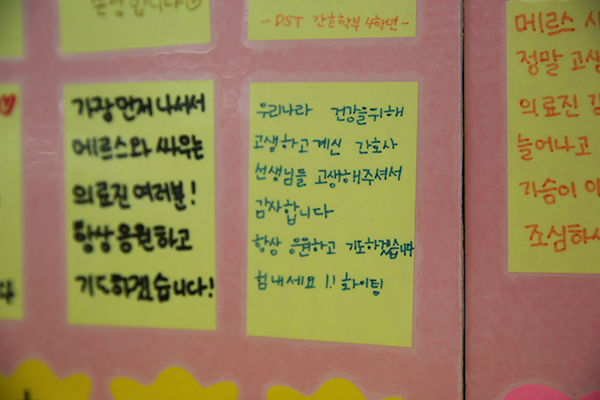 - DST 간호학부 4학년 -
가장 먼저 나서서
메르스와 싸우는
의료진 여러분!
항상 응원하고
기도하겠습니다!
우리나라 건강을 위해
고생하고 계신 간호사
선생님들 고생해주셔서
감사합니다
항상 응원하고 기도하겠습니다
힘내세요!! 화이팅
메르스
정말 고생
의료진
늘어나고
가슴이
조심하